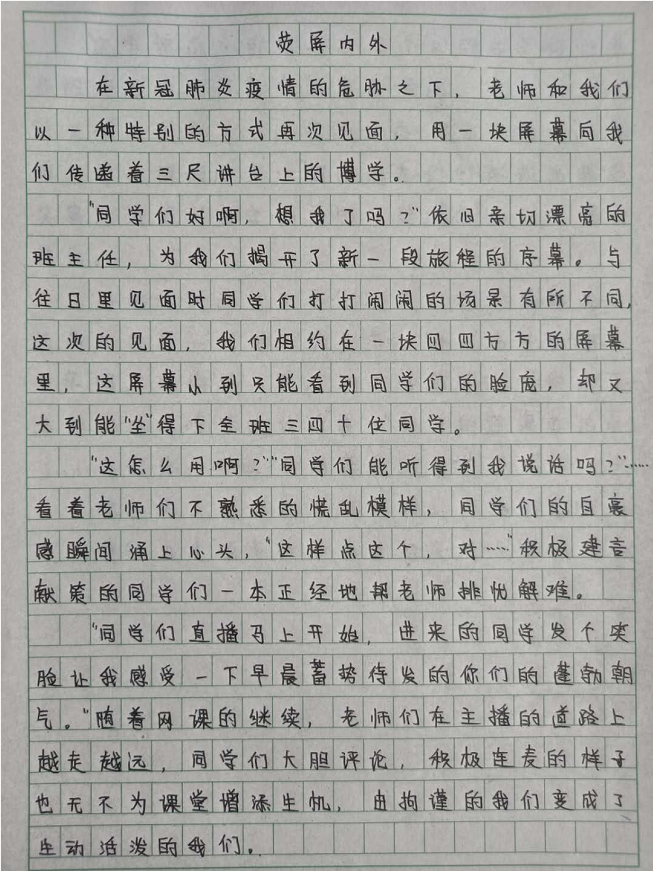 荧屏内外
在新冠肺炎疫情的危胁之下，老师和我们
以一种特别的方式再次见面，用一块屏幕向我
们传递着三尺讲台上的博学。
"同学们好啊，想我了吗？"依旧亲切漂亮的
班主任，为我们揭开了新一段旅程的序幕。与
往日里见面时同学们打打闹闹的场景有所不同，
这次的见面，我们相约在一块四四方方的屏幕
里，这屏幕小到只能看到同学们的脸庞，却又
大到能"坐"得下全班三四十位同学。
"这怎么用啊？""同学们能听得到我说话吗？"……
看着老师们不熟悉的慌乱模样，同学们的自豪
感瞬间涌上心头，"这样点这个，对……"积极建言
献策的同学们一本正经地帮老师排忧解难。
"同学们直播马上开始，进来的同学发个笑
脸让我感受一下早晨蓄势待发的你们的蓬勃朝
气。"随着网课的继续，老师们在主播的道路上
越走越远，同学们大胆评论，积极连麦的样子
也无不为课堂增添生机，由拘谨的我们变成了
生动活泼的我们。